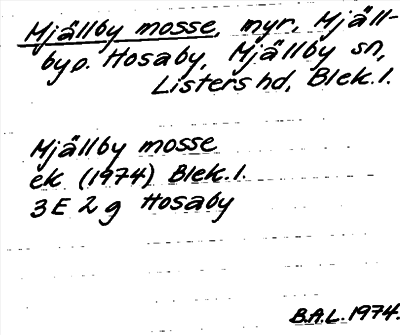 Mjällby mosse, myr, Mjäll-
byp. Hosaby, Mjällby sn,
Listers hd, Blek.l.
Mjällby mosse
ek (1974) Blek.l.
3E 2g Hosaby
B.A.L. 1974.